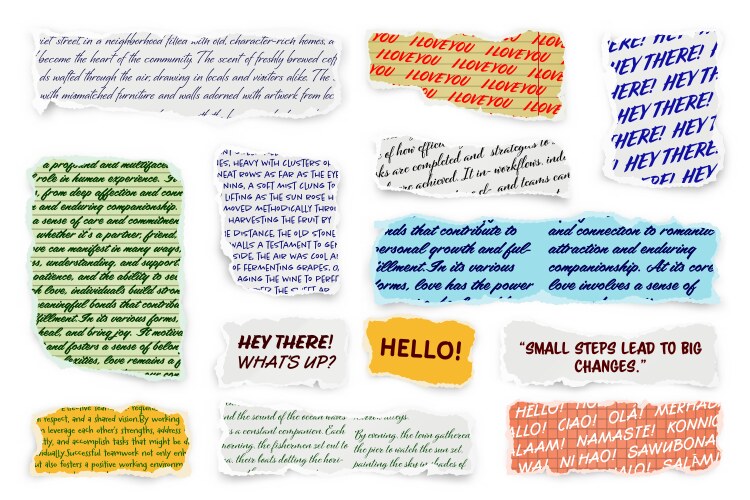 uiet street, in a neighborhood filled with old, character-rich homes, a
become the heart of the community. The scent of freshly brewed coff
ds wafted through the air, drawing in locals and visitors alike. The
with mismatched furniture and walls adorned with artwork from loc
YOU I LOVE YOU I LOVE
I LOVE YOU I LOVE YOU I LOV
YOU I LOVE YOU I LOVE
I LOVE YOU I LOVE YOU I LOVE
I LOVE YOU I LOVE
ERE! HEY TH
HEY THERE!
THERE! HEY TH
HEY THERE!
HERE! HEY T
HEY THERE!
ERE! HEY
a profound and multiface
role in human experience. In
, from deep affection and conn
n and enduring companionship.
a sense of care and commitmen
whether it's a partner, friend,
ove can manifest in many ways,
ss, understanding, and support.
patience, and the ability to se
h love, individuals build stron
eaningful bonds that contribu
fillment. In its various forms,
heal, and bring joy. It motiva
and fosters a sense of belon
exities, love remains a f
ES, HEAVY WITH CLUSTERS OF
NEAT ROWS AS FAR AS THE EYE
NING, A SOFT MIST CLUNG TO
LIFTING AS THE SUN ROSE H
MOVED METHODICALLY THROU
HARVESTING THE FRUIT BY
E DISTANCE, THE OLD STONE
WALLS A TESTAMENT TO GEN
SIDE THE AIR WAS COOL AN
OF FERMENTING GRAPES, O
AGING THE WINE TO PERF
of how efficien
ks are completed and strategies to
are achieved. It in- workflows, indi
and teams can
nds that contribute to
ersonal growth and ful-
illment. In its various
orms, love has the power
and connection to romantic
attraction and enduring
companionship. At its core
love involves a sense of
HEY THERE!
WHAT'S UP?
HELLO!
“SMALL STEPS LEAD TO BIG
CHANGES.”
respect, and a shared vision. By working
leverage each other's strengths, address
ity, and accomplish tasks that might be d
vidually. Successful teamwork not only enh
ut also fosters a positive working environm
nd the sound of the ocean waves
s a constant companion. Each
morning, the fishermen set out to
ea, their boats dotting the hori-
always.
By evening, the town gathered
the pier to watch the sun set,
painting the sky in shades of
HELLO! HOLA! MERHAB
LO! CIAO! OLÁ! MERHAB
ALAAM! NAMASTE! KONNIC
WAI NI HAO! SAWUBONA